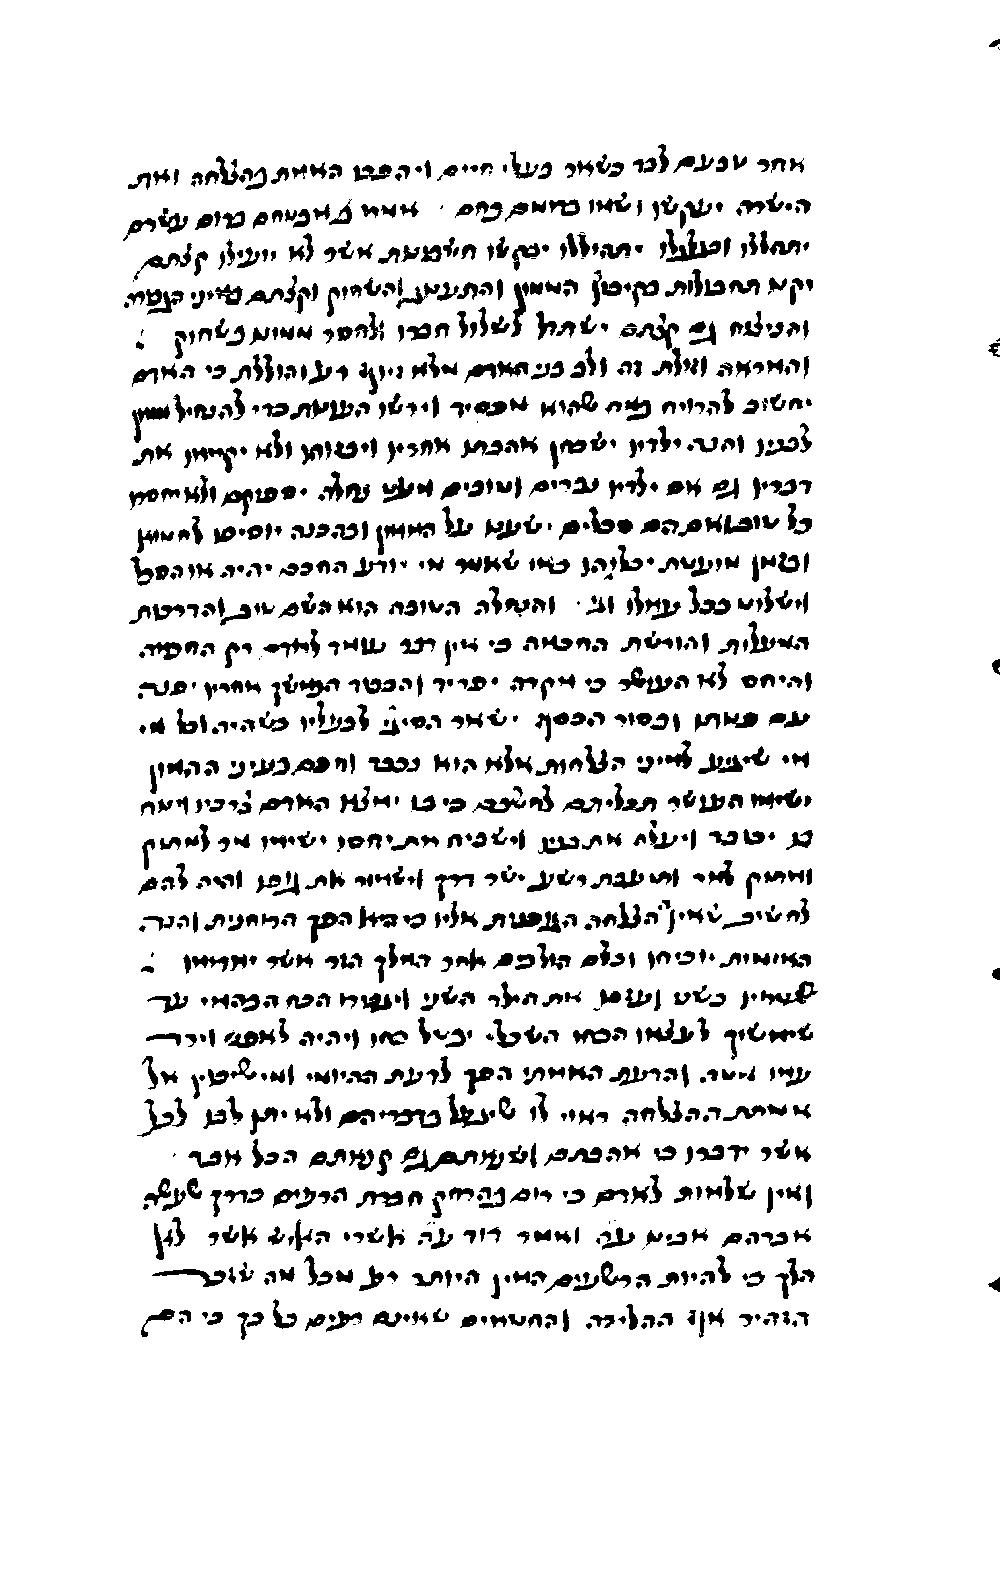 אחר טבעם לבד כשאר בעלי חיים ויהפכו האמת בהצלחה ואת
הישרה יעקשו ושאו ברואם בהם
יתהללו יבקשו אשר לא יועילו קצתם
יקא תחבולות בקיבוץ הממון והתענוג והשחוק וקצתם מיני
והניצוח גם קצתם ישתדל לשלול חברו ולחסר ממונו בשחוק
והמראה זולת זה ולב בני האדם מלא רע והוללת כי האדם
יחשוב להרויח במה שהוא מפסיד וירצו העושת כדי להנחיל ממון
לבניו והנה ילדיו ישכחו אהבתו אחריו ויבזוהו ולא יקיימו את
דבריו גם אם ילדיו גברים וטובים מעט נחלה יספיקם ולא יחסרו
כל טוב ואם הם סכלים על הממון ובהכנה יוסיפו לחטוא
ובזמן מועט יכלוהו כמו שאמר מי יודע החכם יהיה או הסכל
וישלוט בכל עמלו וגו' והנחלה הטובה הוא השם טוב והדרכות
המעלות והורשת החכמה כי אין דבר עומד לאדם רק החכמה
והיחס לא העושר כי מקרה יפריד והנפטר המושך אחריו יפנה
עם מאתו ובסור הכסף ישאר הסיג לבעליו כשהיה וכל מי
מי שיגיע למיני הצלחות אלא הוא נכבד וחכם בעיני ההמון
ושימו העושר תכליתם לחשבם כי בו ימצא האדם
כן יכובד ויעלה את בניו וישביח את יחסו ישימו מר למתוק
ומתוק למר ותועבת רשע ישר דרך וישמור את נפשו והיה להם
לחשוב שאין ההצלחה הנפשית אליו כי היא הפך הרוחנית והנה
האומות יוכיחו וכלם הולכים אחר המלך הזה אשר יאמרו
כשט ועזבו את הילד השני ויגבירו הכח הבהמי עד
שימשיך לעצמו הכח השכלי יבטל כחו ויהיה לאפס וירד
עמו מטה והדעת האמיתי הפך לדעת ההיולי ומי שיכוין אל
אמתת ההצלחה ראוי לו שיבטל בדבריהם ולא יתן לבו לכל
אשר ידברו כי אהבתם ושנאתם גם קנאתם הכל אבד
ואין שלמות לאדם כי אם בהרחק חברת הרעים כדרך שעשה
אברהם אבינו ע״ה ואמר דוד ע״ה אשרי האיש אשר לא
הלך כי להיות הרשעים המין היותר רע מכל מה שזכר
הזהיר אף ההליכה והחטאים שאינם רעים כל כך כי הם